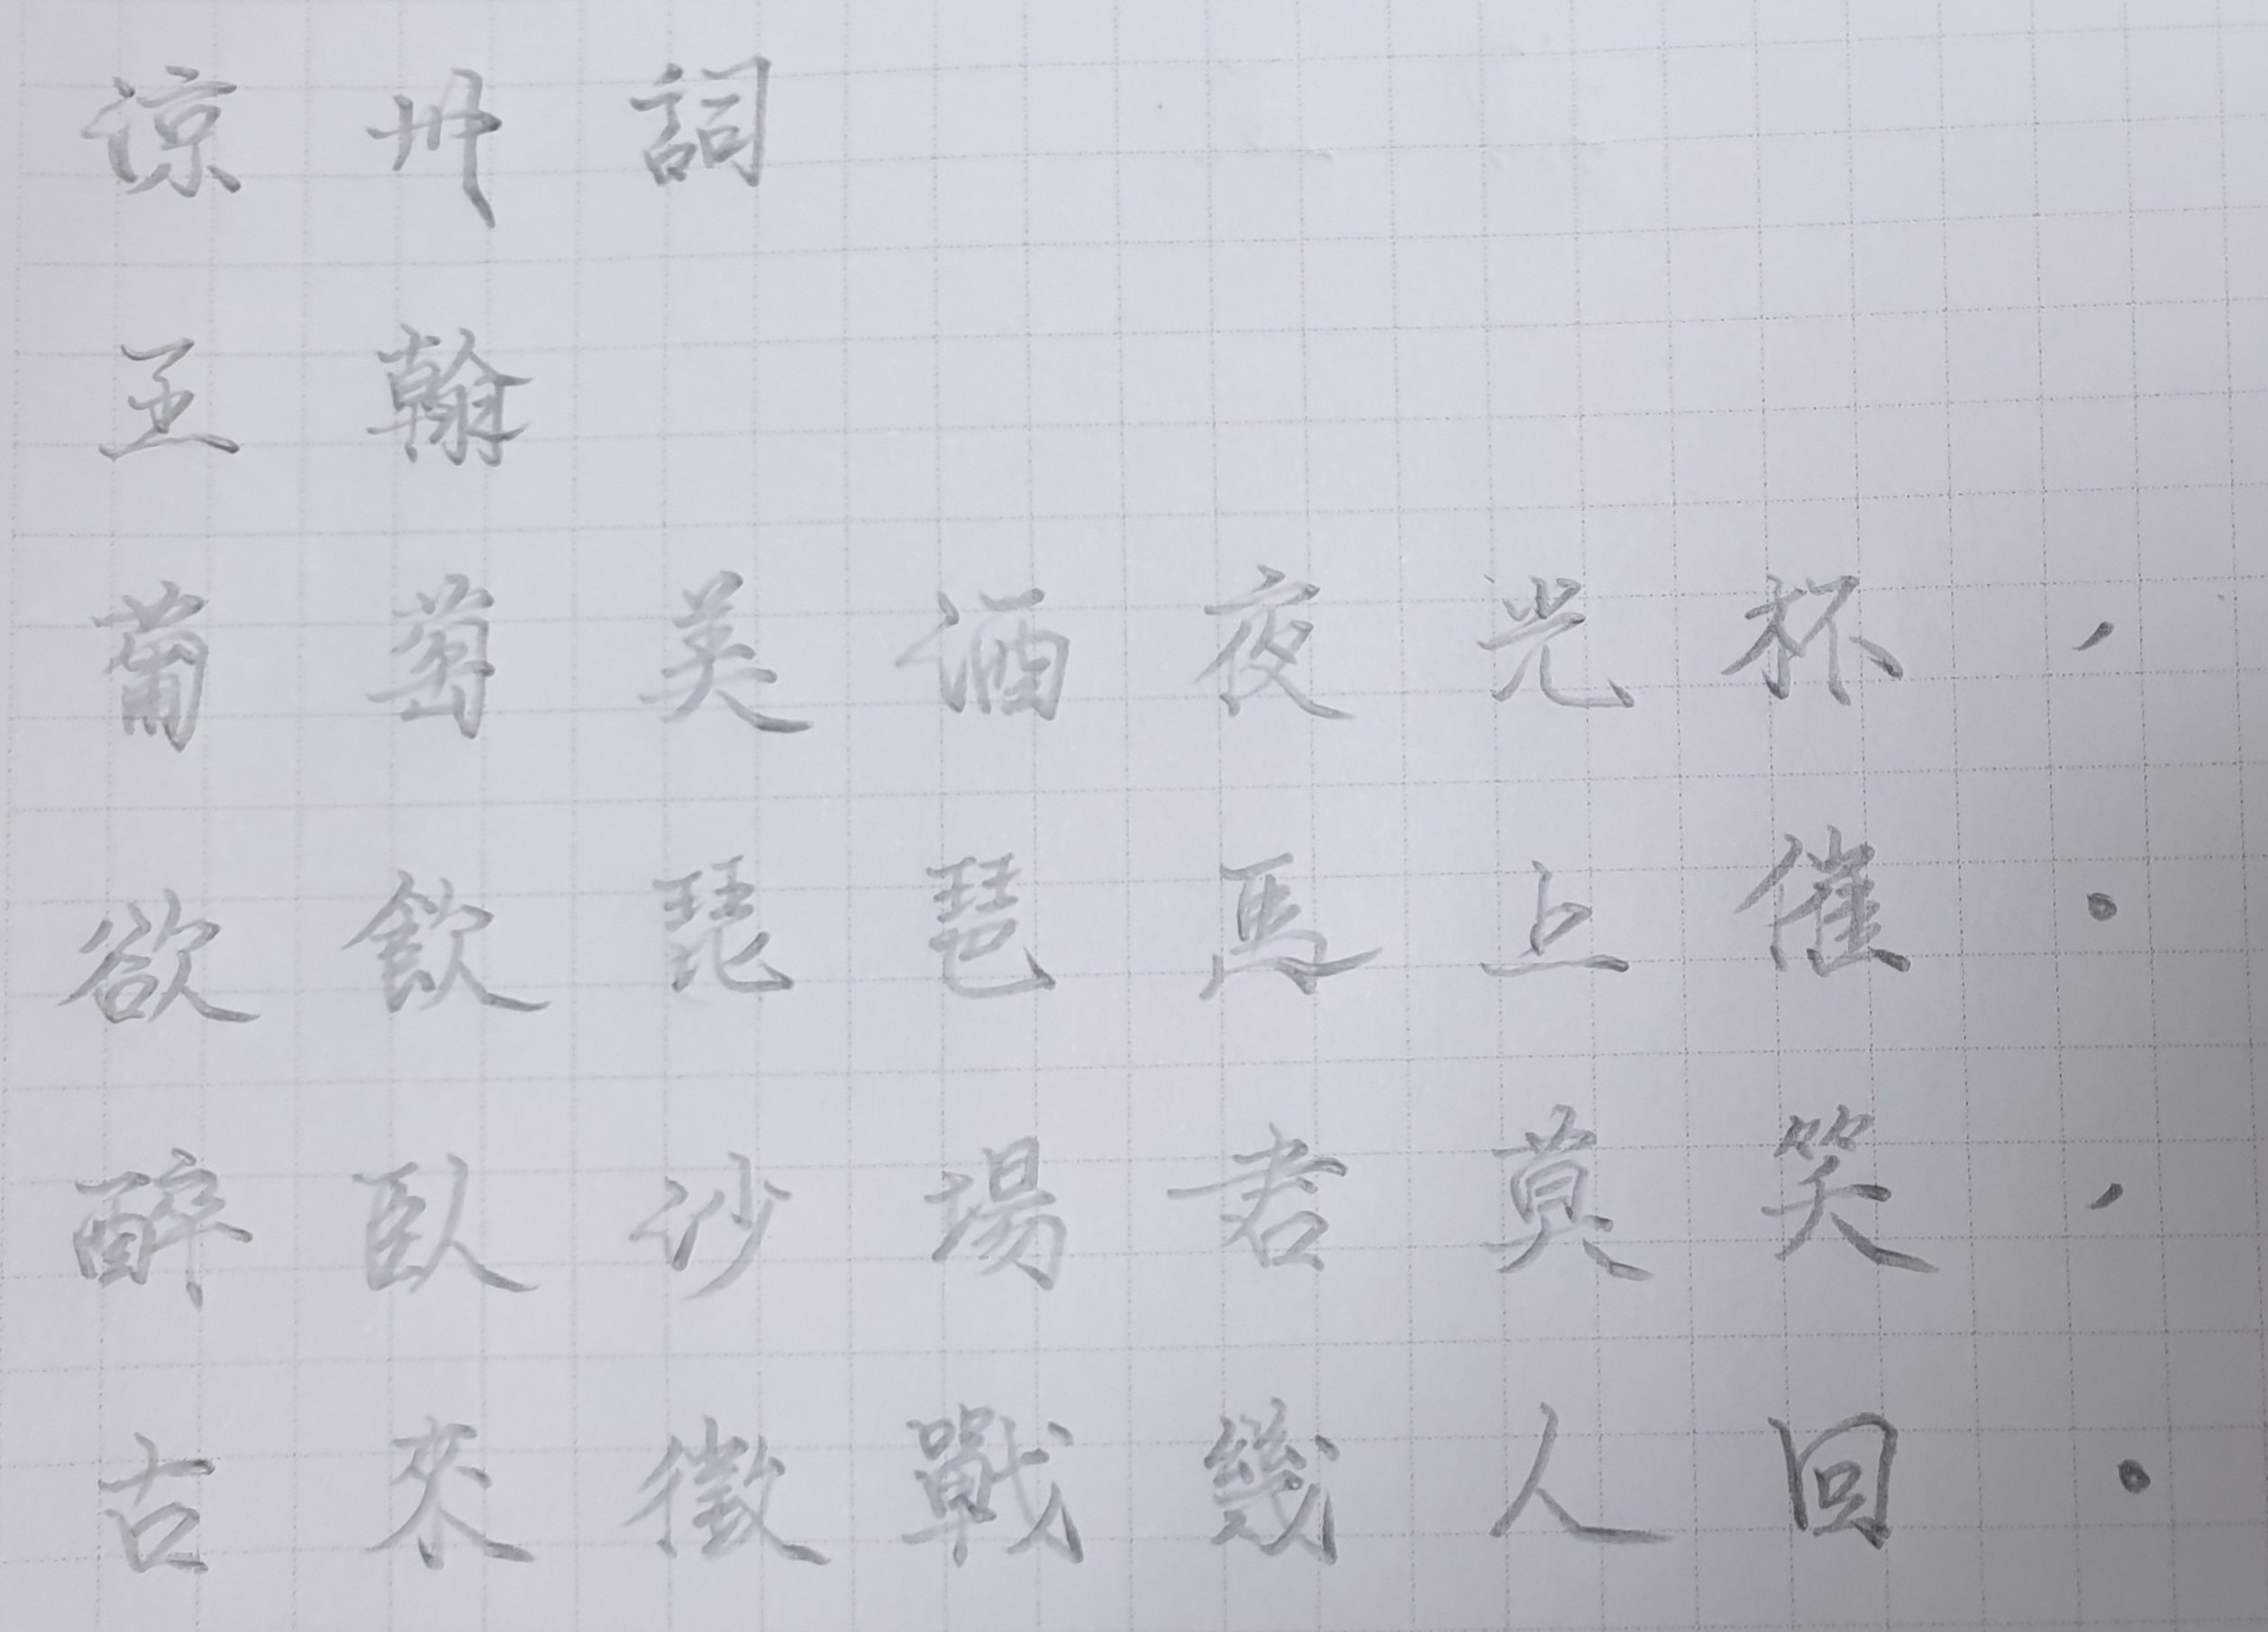 涼州詞
王翰
葡萄美酒夜光杯，
欲飲琵琶馬上催。
醉臥沙場君莫笑，
古來徵戰幾人回。